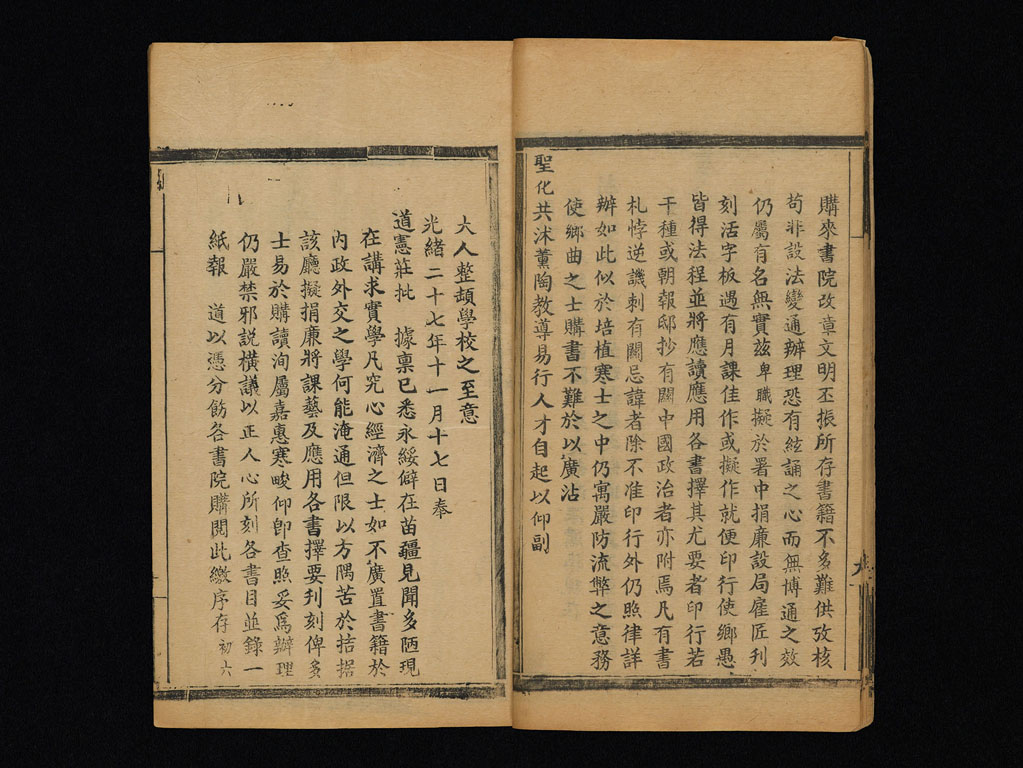 購來書院改章文明丕振所存書籍不多難供攷核
苟非設法變通辦理恐有絃誦之心而無博通之效
仍屬有名無實茲卑職擬於署中捐廉設局雇匠刊
刻活字板遇有月課佳作或擬作就便印行使鄉愚
皆得法程並將應讀應用各書擇其尤要者印行若
干種或朝報邸抄有關中國政治者亦附焉凡有書
札悖逆譏刺有關忌諱者除不准印行外仍照律詳
辦如此似於培植寒士之中仍寓嚴防流弊之意務
使鄉曲之士購書不難於以廣沾
聖化共沐薰陶教導易行人才自起以仰副
大人整頓學校之至意
光緒二十七年十一月十七日奉
道憲莊批　據稟已悉永綏僻在苗疆見聞多陋現
在講求實學凡究心經濟之士如不廣置書籍於
內政外交之學何能淹通但限以方隅苦於拮据
該廳擬捐廉將課藝及應用各書擇要刊刻俾多
士易於購讀洵屬嘉惠寒畯仰卽查照妥爲辦理
仍嚴禁邪説橫議以正人心所刻各書目並錄一
紙報　道以憑分飭各書院購閱此繳序存初六